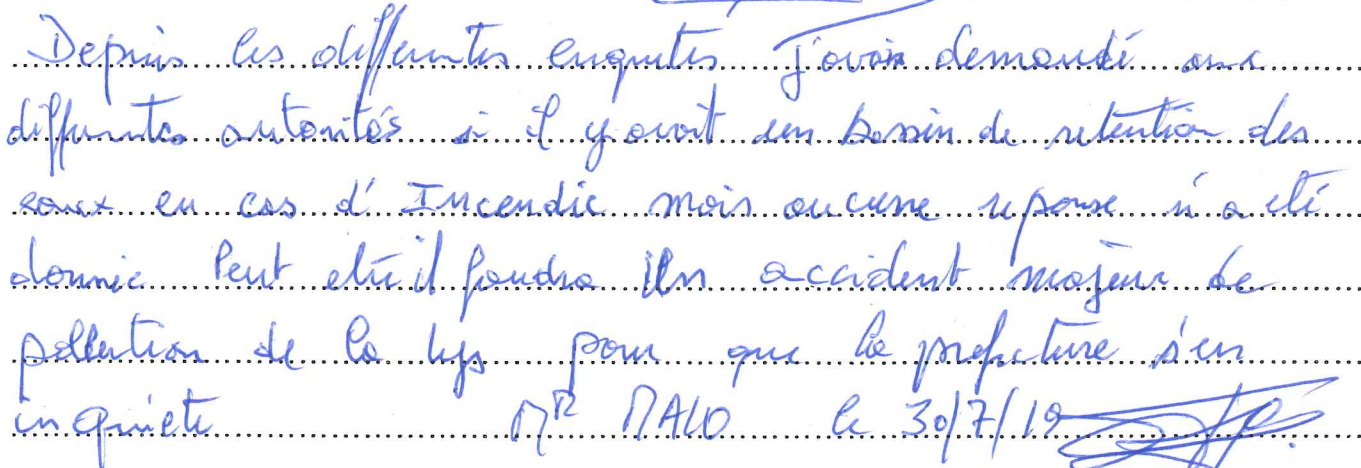 Depuis les differentes enquetes J'avais demandé aux
differentes autorités si il y avait un bassin de retention des
eaux en cas d'Incendie mais aucune reponse n'a eté
donnée Peut etre il faudra Un accident majeur de
pollution de la lys pour que la prefecture s'en
inquiete MR MALO le 30/7/19